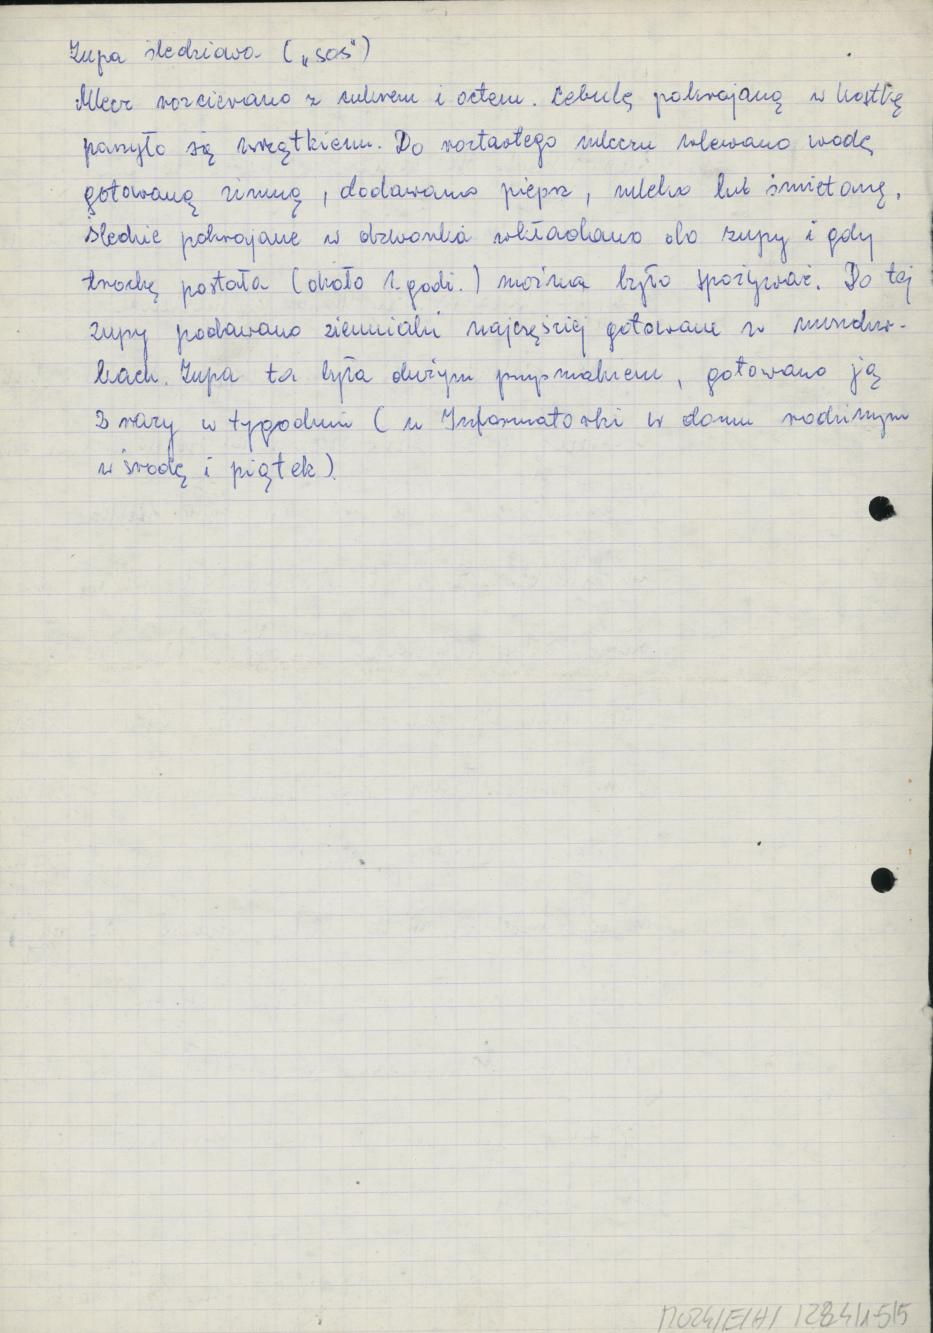 Zupa śledziowa („sos")
Mlecz rozcierano z cukrem i octem. Cebulę pokrojaną w kostkę
parzyło się wrzątkiem. Do roztartego mleczu wlewano wodę
gotowaną zimną, dodawano pieprz, mleko lub śmietanę,
śledzie pokrojane w dzwonka wkładano do zupy i gdy
trochę postała (około 1 godz.) można było spożywać. Do tej
zupy podawano ziemniaki najczęściej gotowane w mundur-
kach. Zupa ta była dużym przysmakiem, gotowano ją
3 razy w tygodniu (u Informatorki w domu rodzinnym
w środę i piątek).